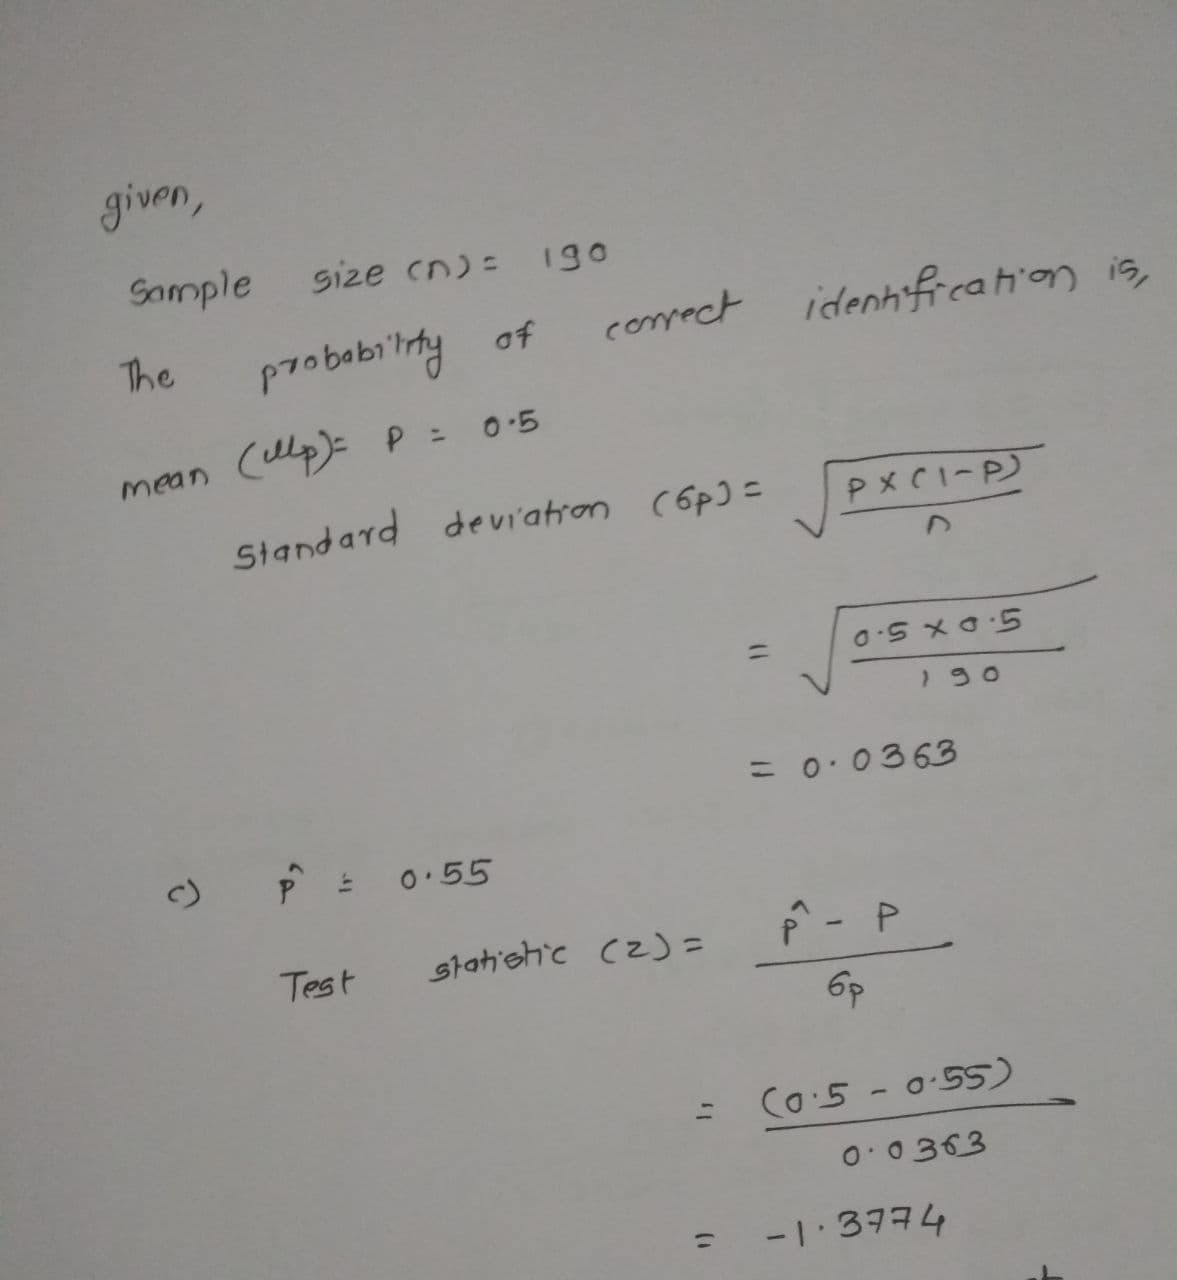 given,
Sample size (n) = 190
The probability of correct identification is,
mean (μp) = P = 0.5
Standard deviation (σp) = √(P×(1-P)/n)
= √(0.5×0.5/190)
= 0.0363
c) p̂ = 0.55
Test statistic (z) = (p̂ - P)/σp
= (0.5 - 0.55)/0.0363
= -1.3774